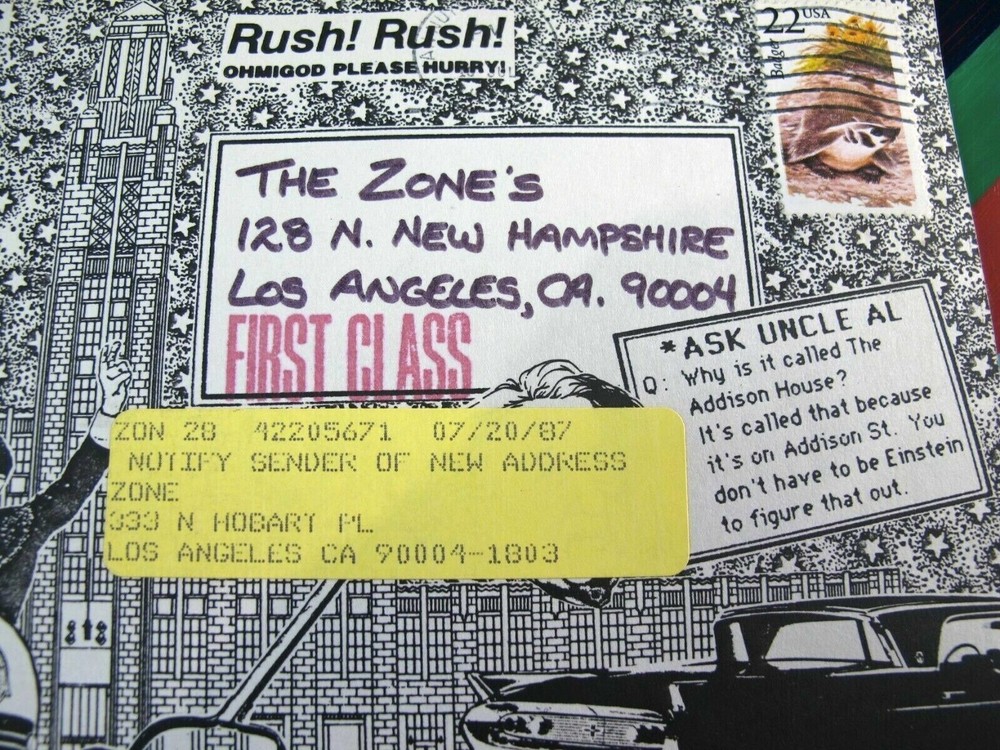 Rush! Rush!
OHMIGOD PLEASE HURRY!
22 USA
THE ZONE'S
128 N. NEW HAMPSHIRE
LOS ANGELES, CA. 90004
FIRST CLASS
*ASK UNCLE AL
Q: Why is it called The
Addison House?
It's called that because
it's on Addison St. You
don't have to be Einstein
to figure that out.
ZON 28 42205671 07/20/87
NOTIFY SENDER OF NEW ADDRESS
ZONE
333 N HOBART PL
LOS ANGELES CA 90004-1803